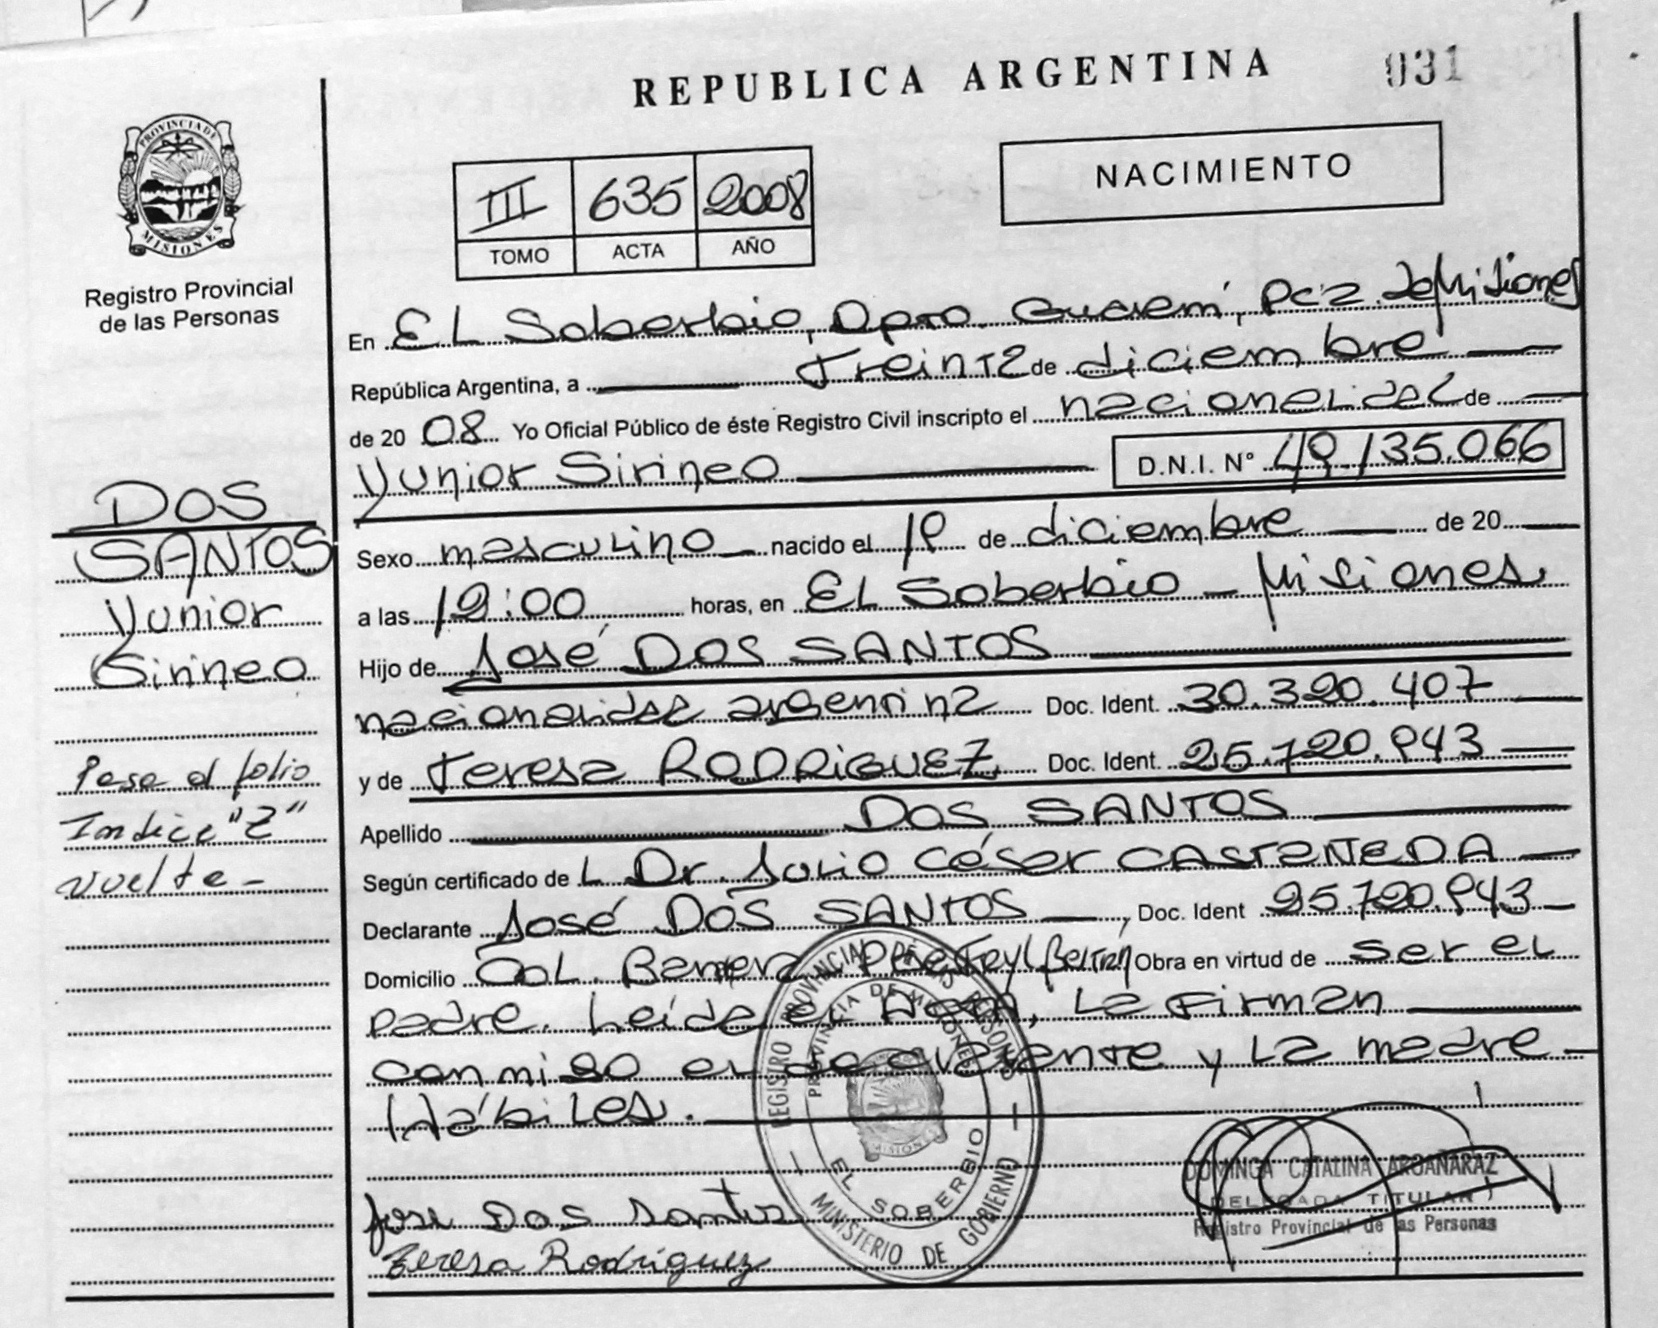 REPUBLICA ARGENTINA
031
PROVINCIA DE
MISIONES
Registro Provincial
de las Personas
NACIMIENTO
III 635 2008
TOMO ACTA AÑO
En EL Soberbio, Dpto. Guaraní, Pcia. de Misiones
República Argentina, a Treinta de diciembre
de 2008 Yo Oficial Público de éste Registro Civil inscripto el nacionalidad de
Yunior Sirineo D.N.I. N° 49.135.066
Sexo masculino nacido el 19 de diciembre de 20
a las 19:00 horas, en EL Soberbio - Misiones
Hijo de José DOS SANTOS
nacionalidad argentina Doc. Ident. 30.390.407
y de Teresa RODRIGUEZ Doc. Ident. 25.720.943
Apellido DOS SANTOS
Según certificado deL Dr. Julio César CASTAÑEDA
Declarante José DOS SANTOS, Doc. Ident 25.720.943
Domicilio Col. Obra en virtud de ser el
padre. Leída el Acta, La Firman
conmigo el declarante y La madre
Hábiles.
DOS
SANTOS
Yunior
Sirineo
Pasa al folio
Indice "Z"
vuelta -
REGISTRO PROVINCIAL DE LAS PERSONAS
PROVINCIA DE MISIONES
EL SOBERBIO
MINISTERIO DE GOBIERNO
Jose Dos Santos
Teresa Rodriguez
DOMINGA CATALINA ARGAÑARAZ
DELEGADA TITULAR
Registro Provincial de las Personas